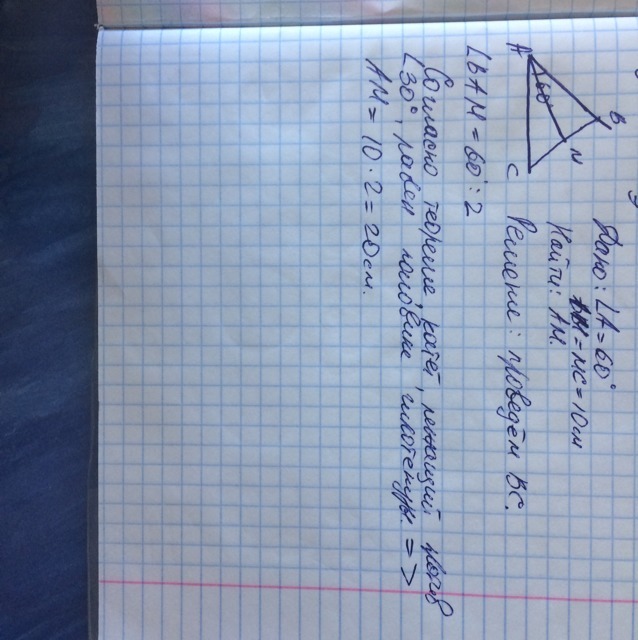 Дано: ∠A = 60°
= MC = 10 см
Найти: AM.
Решение: проведём BC.
A
B
N
C
60°
∠BAM = 60 : 2
Согласно теореме, катет, лежащий против
∠30°, равен половине гипотенузы =>
AM = 10 · 2 = 20 см.